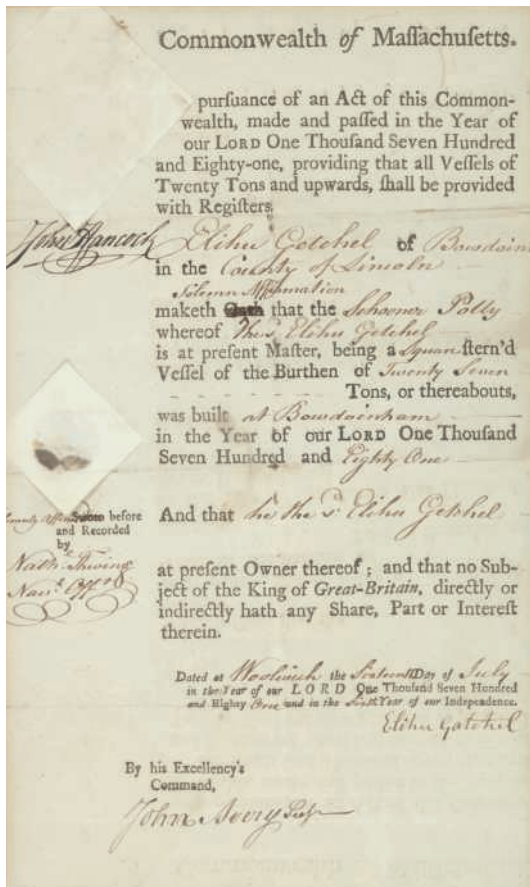 Commonwealth of Maſſachuſetts.
purſuance of an Act of this Common-
wealth, made and paſſed in the Year of
our LORD One Thouſand Seven Hundred
and Eighty-one, providing that all Veſſels of
Twenty Tons and upwards, ſhall be provided
with Registers,
John Hancock
Elihu Getchel of Bowdoin
in the County of Lincoln
Solemn Affirmation
maketh Oath that the Schooner Polly
whereof the sd. Elihu Getchel
is at preſent Maſter, being a Square ſtern'd
Veſſel of the Burthen of Twenty Seven
Tons, or thereabouts,
was built at Bowdoinham
in the Year of our LORD One Thouſand
Seven Hundred and Eighty One
And that he the sd. Elihu Getchel
Sworn before
and Recorded
by
Nath. Thwing
Nav.l Off.r
at preſent Owner thereof; and that no Sub-
ject of the King of Great-Britain, directly or
indirectly hath any Share, Part or Intereſt
therein.
Dated at Woolwich the Sixteenth Day of July
in the Year of our LORD One Thouſand Seven Hundred
and Eighty One and in the Sixth Year of our Independence.
Elihu Gatchel
By his Excellency's
Command,
John Avery Secy